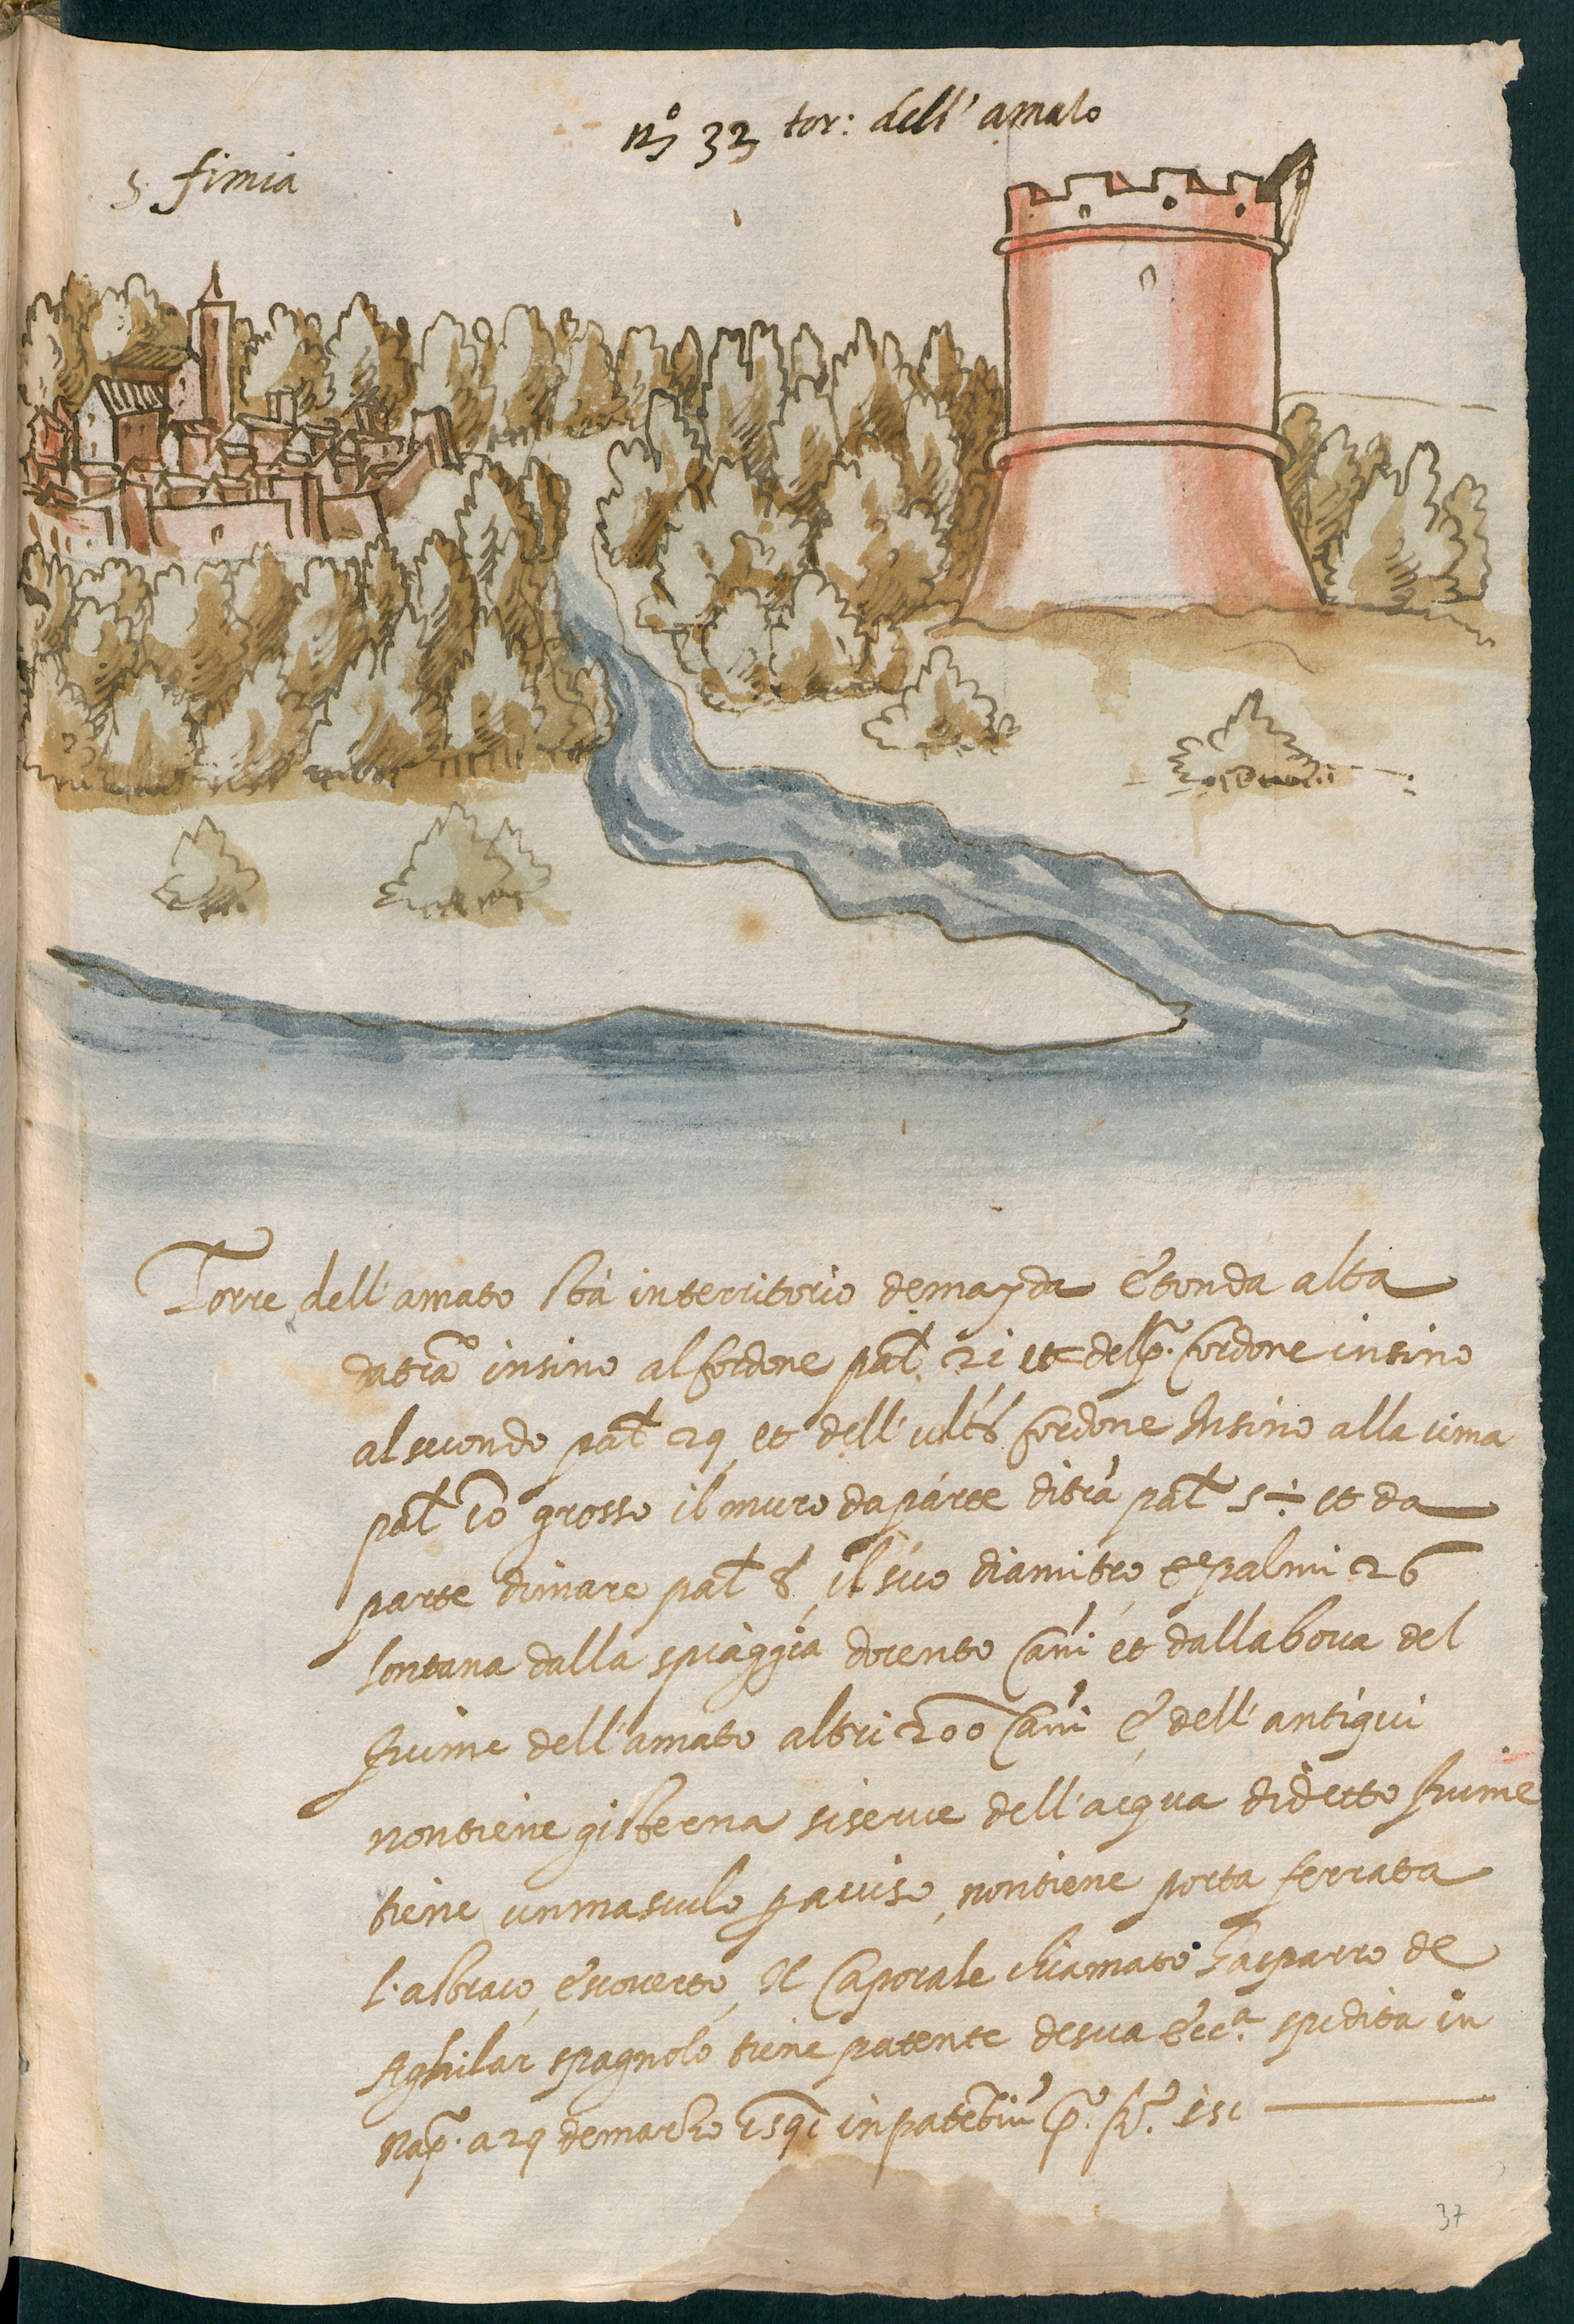 nº 33 tor: dell' amato
S. fimia
Torre dell'amato sta interritorio demayda è tonda alta
datrã insino al Cordone palˡ 21 et del pº. Cordone insino
alsecondo palˡ 29 et dell' Cordone Insino alla cima
palˡ 10 grosso il muro daparte ditra palˡ 5÷ et da
parte dimare palˡ 8 il suo diamitro è palmi 26
lontana dalla spiaggia docento et dallaboca del
fiume dell'amato altri 200 è dell'antiqui
nontiene gisterna siserue dell'acqua didetto fiume
tiene unmasculo nontiene porta ferrata
l'astraco è scoverto, Il Caporale chiamato Gasparro de
Aghilar spagnolo tiene patente desua Ecc.ª spidita in
Nap. a 29 demarzo 1591 pº. fº. 151
37